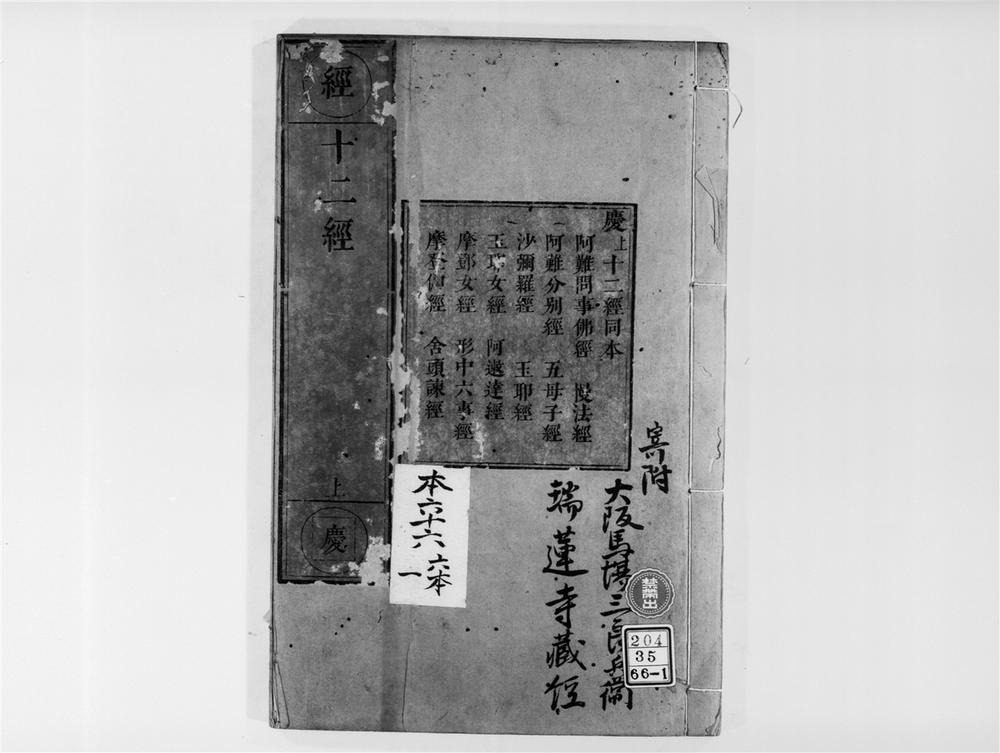 慶上十二經同本
阿難問事佛經 慢法經
阿難分別經 五母子經
沙彌羅經 玉耶經
玉耶女經 阿遬達經
摩鄧女經 形中六事經
摩登伽經 舍頭諫經
經
十二經
上
慶
寄附
大阪馬場三良兵衞
瑞蓮寺藏經
本六十六 六本
一
禁帶出
204
35
66-1